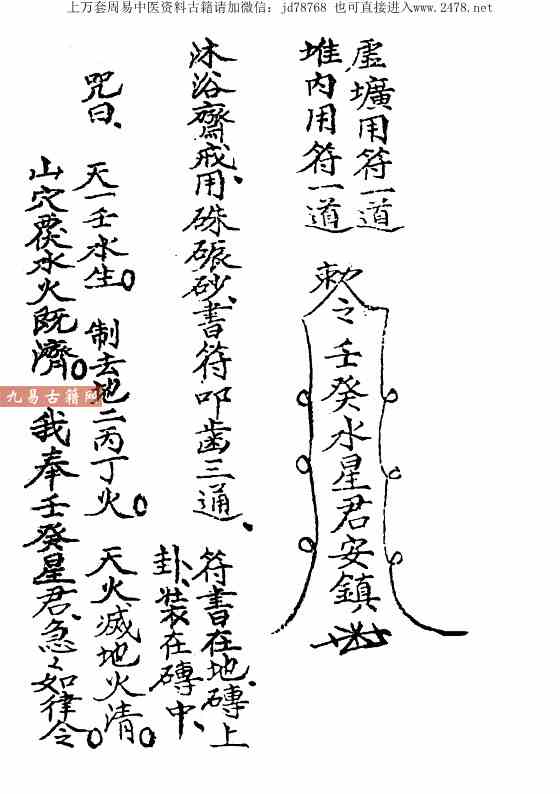 上万套周易中医资料古籍请加微信：jd78768 也可直接进入www.2478.net
虛壙用符一道
堆內用符一道
勅令壬癸水星君安鎮
沐浴齋戒、用硃砂、書符叩齒三通、
符書在地磚上
卦、裝在磚中、
咒曰、
天一壬水生。制去地二丙丁火。天火滅地火清。
山穴伏水火既濟。我奉壬癸星君、急々如律令。
九易古籍网